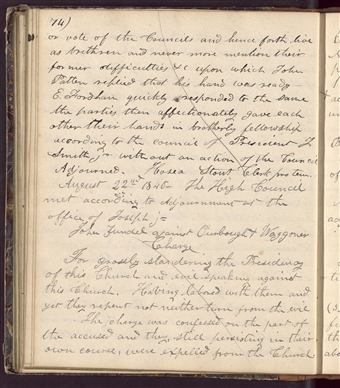 74)
or vote of the Councils and hence forth live
as brethren and never more mention their
former difficulties &c upon which John
Patten replied that his hand was ready
E. Fordham quickly responded to the same
the parties then affectionately gave each
other their hands in brotherly fellowship
according to the council of President J.
Smith jr without an action of the Council
Adjourned. Hosea Stout Clerk pro tem.
August 22nd 1840 - The High Council
met according to Adjournment at the
office of Joseph jr
John Hundel against Ourbough & Waggoner
Charge
For grossly slandering the Presidency
of this Church and evil speaking against
this Church. Having labored with them and
yet they repent not neither turn from the evil
The charge was confessed on the part of
the accused and they still persisting in their
own course, were expelled from the Church